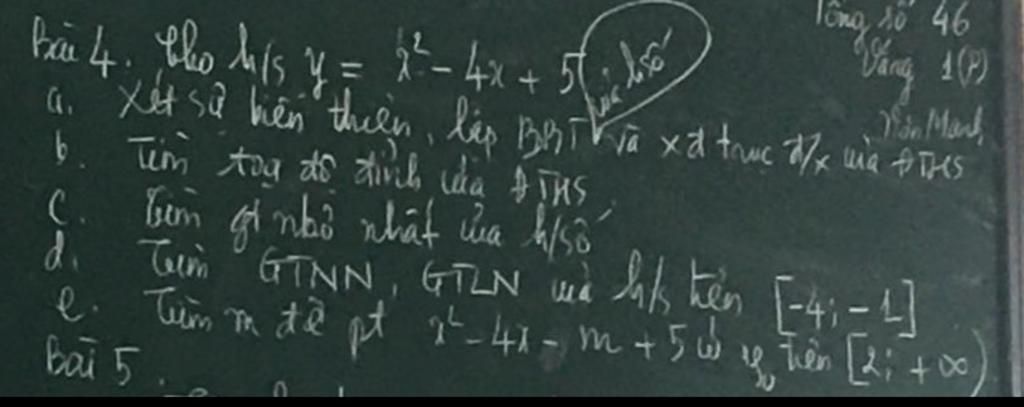 Tổng số 46
Vắng 1(P)
Văn Mạnh
Bài 4. Cho h/s y = x² - 4x + 5
của h.số
a. Xét sự biến thiên, lập BBT và xđ trục đ/x của ĐTHS
b. Tìm toạ độ đỉnh của ĐTHS
c. Tìm gt nhỏ nhất của h/số
d. Tìm GTNN, GTLN của h/s trên [-4; -1]
e. Tìm m để pt x² - 4x - m + 5 có trên [2; +∞)
Bài 5.